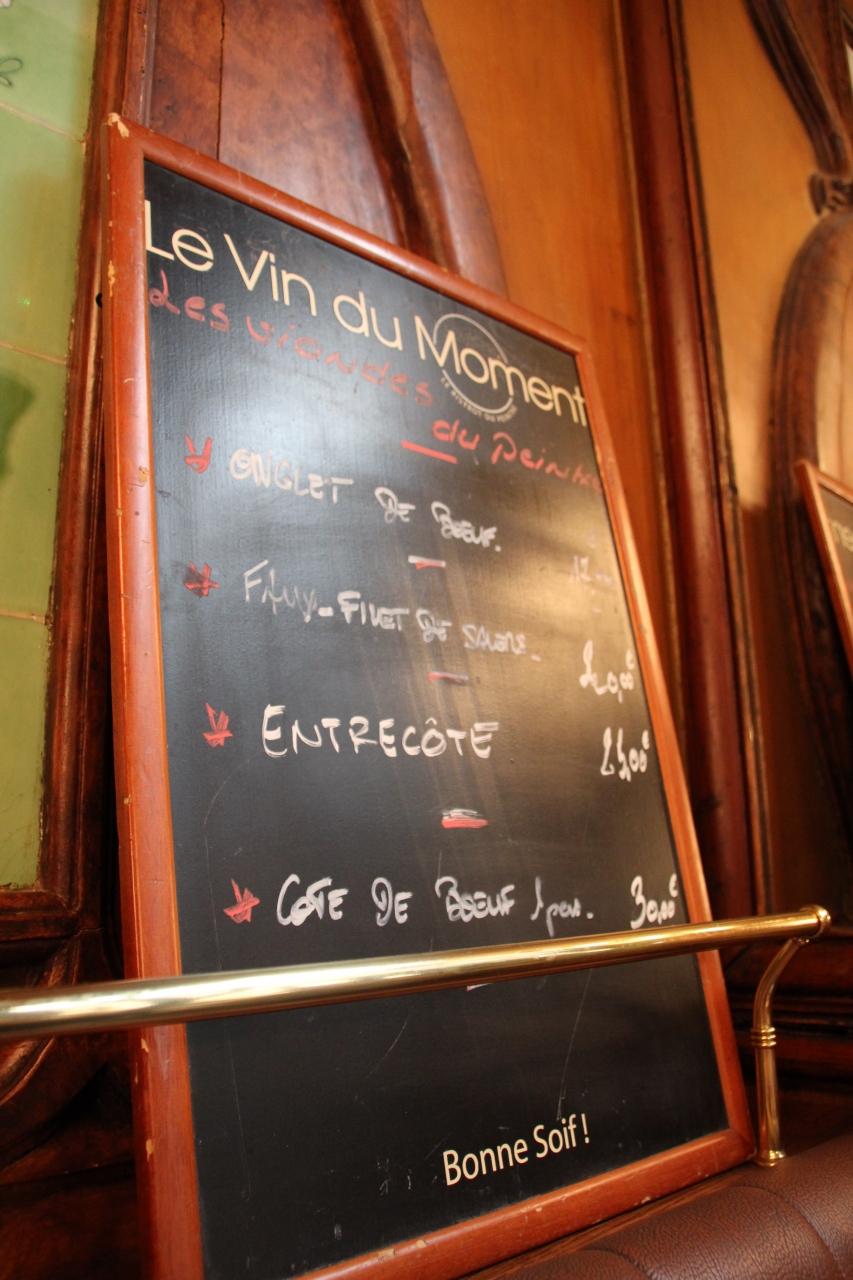 Le Vin du Moment
LE BISTROT DU PEINTRE
Les viandes
du Peintre
ONGLET DE BOEUF.
FAUX-FILET DE SALERS.
20,00€
ENTRECÔTE
COTE DE BOEUF 1 pers. 30,00€
Bonne Soif !